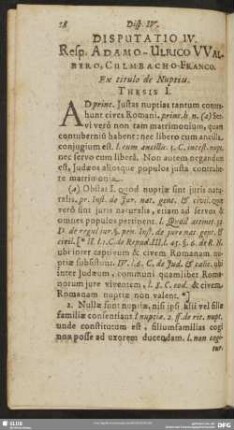 28 Disp. IV.
DISPUTATIO IV.
Resp. ADAMO-ULRICO VVAL-
BERO, CULMBACHO-FRANCO.
Ex titulo de Nuptiis.
THESIS I.
AD princ. Justas nuptias tantum contra-
hunt cives Romani, princ. h. n. (a) Ser-
vi verò non tam matrimonium, quam
contubernia habent: nec libero cum ancilla,
conjugium est. l. cum ancillis. C. de incest. nupt.
nec servo cum liberâ. Non autem negandum
est, Judæos aliosque populos justa contrahe-
re matrimonia.
(a) Obstat I. quod nuptiæ sint juris natu-
ralis. pr. Inst. de Jur. nat. gent. & civil. quæ
verò sint juris naturalis, etiam ad servos &
omnes populos pertinent.
D. de regul. jur. Inst. de jure nat. gent. &
civil. [* II. l. 1. C. de Repud. III. l. 45. §. 6. de R. N.
ubi inter captivum & civem Romanam nu-
ptiæ subsistunt. IV. l. 8. C. de Jud. & cælic. ubi
inter Judæum, communi quamlibet Roma-
norum jure viventem, l. 8. C. eod. & civem
Romanam nuptiæ non valent. *]
2. Nullæ sunt nuptiæ, nisi ipsi filii vel filiæ
familiæ consentiant l nuptiæ. 2. ff. de rit. nupt.
unde constitutum est, filiumfamilias cogi
non posse ad uxorem ducendam. l. non cogi-
tur.